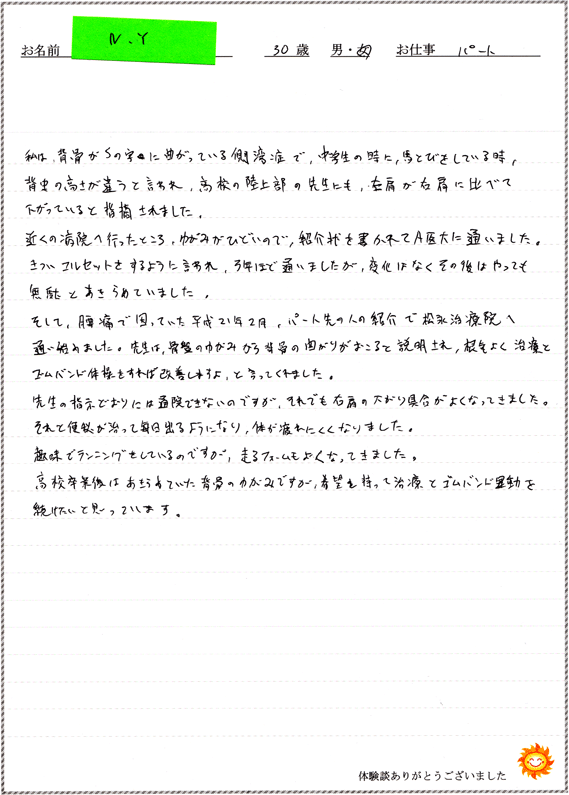 お名前 N.Y 30歳 男・女 お仕事 パート
私は、背骨がSの字に曲がっている側湾症で、中学生の時に、馬とびをしている時、
背中の高さが違うと言われ、高校の陸上部の先生にも、左肩が右肩に比べて
下がっていると指摘されました。
近くの病院へ行ったところ、ゆがみがひどいので、紹介状を書かれてA医大に通いました。
きついコルセットをするように言われ、3年ほど通いましたが、変化はなくその後はやっても
無駄とあきらめていました。
そして、腰痛で困っていた平成21年2月、パート先の人の紹介で松永治療院へ
通い始めました。先生は、骨盤のゆがみから背骨の曲がりがおこると説明され、根気よく治療と
ゴムバンド体操をすれば改善しますよ、と言ってくれました。
先生の指示どおりには通院できないのですが、それでも右肩の下がり具合がよくなってきました。
それと便秘が治って毎日出るようになり、体が疲れにくくなりました。
趣味でランニングをしているのですが、走るフォームもよくなってきました。
高校卒業後はあきらめていた背骨のゆがみですが、希望を持って治療とゴムバンド運動を
続けたいと思っています。
体験談ありがとうございました